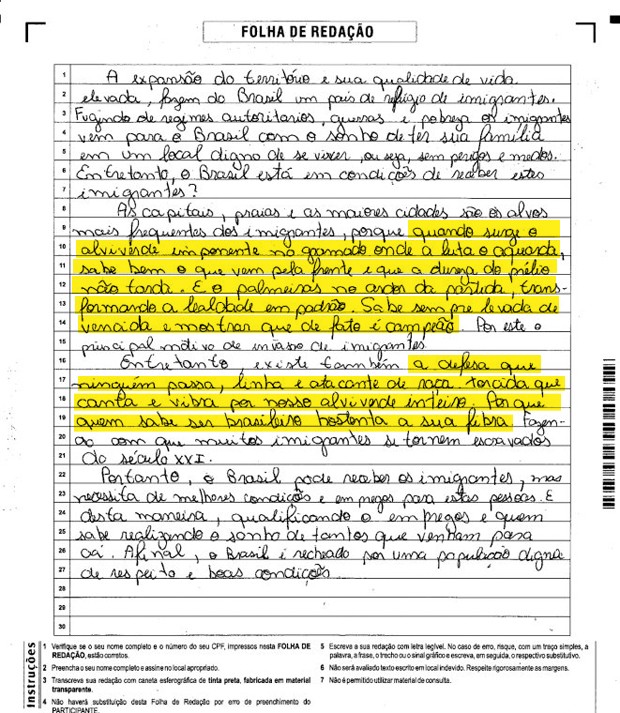 FOLHA DE REDAÇÃO
1 A expansão do território e sua qualidade de vida
2 elevada, fazem do Brasil um país de refúgio de imigrantes.
3 Fugindo de regimes autoritários, guerras e pobreza os imigrantes
4 vem para o Brasil com o sonho de ter sua família
5 em um local digno de se viver, ou seja, sem perigos e medos.
6 Entretanto, o Brasil está em condições de receber estes
7 imigrantes?
8 As capitais, praias e as maiores cidades são os alvos
9 mais frequentes dos imigrantes, porque quando surge o
10 alviverde imponente no gramado onde a luta o aguarda,
11 sabe bem o que vem pela frente e que a dureza do prélio
12 não tarda. E o palmeiras no ardor da partida, trans-
13 formando a lealdade em padrão. Sabe sempre levada de
14 vencida e mostrar que de fato é campeão. Por este o
15 principal motivo de invasão de imigrantes
16 Entretanto, existe também a defesa que
17 ninguém passa, linha e atacante de raça. torcida que
18 canta e vibra por nosso alviverde inteiro. Porque
19 quem sabe ser brasileiro hostenta a sua fibra. Fazen-
20 do com que muitos imigrantes se tornem escravados
21 do século XXI.
22 Portanto, o Brasil pode receber os imigrantes, mas
23 necessita de melhores condições e empregos para estas pessoas. E
24 desta maneira, qualificando o empregos e quem
25 sabe realizando o sonho de tantos que venham para
26 cá. Afinal, o Brasil é recheado por uma população digna
27 de respeito e boas condições
28
29
30
Instruções
1 Verifique se o seu nome completo e o número do seu CPF, impressos nesta FOLHA DE
REDAÇÃO, estão corretos.
2 Preencha o seu nome completo e assine no local apropriado.
3 Transcreva sua redação com caneta esferográfica de tinta preta, fabricada em material
transparente.
4 Não haverá substituição desta Folha de Redação por erro de preenchimento do
PARTICIPANTE.
5 Escreva a sua redação com letra legível. No caso de erro, risque, com um traço simples, a
palavra, a frase, o trecho ou o sinal gráfico e escreva, em seguida, o respectivo substitutivo.
6 Não será avaliado texto escrito em local indevido. Respeite rigorosamente as margens.
7 Não é permitido utilizar material de consulta.